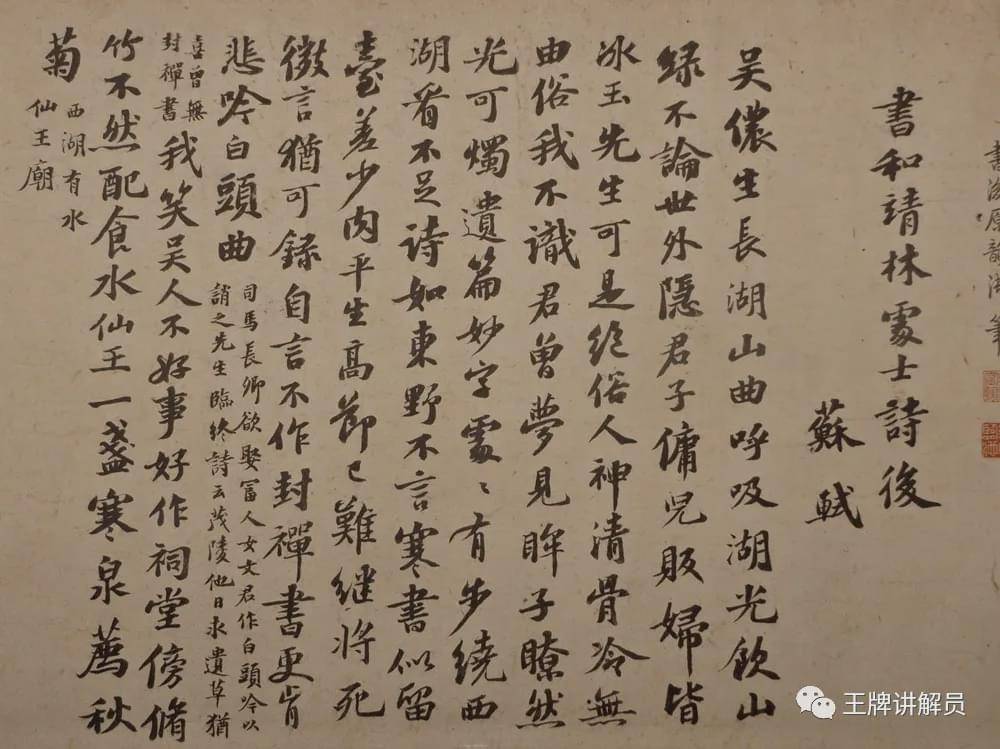 書和靖林處士詩後
蘇軾
吴儂生長湖山曲呼吸湖光飲山
緑不論世外隱君子傭兒販婦皆
冰玉先生可是絶俗人神清骨冷無
由俗我不識君曾夢見眸子瞭然
光可燭遺篇妙字處〻有步繞西
湖看不足詩如東野不言寒書似留
臺差少肉平生高節已難繼將死
微言猶可録自言不作封禪書更肯
悲吟白頭曲
司馬長卿欲娶富人女文君作白頭吟以
誚之先生臨終詩云茂陵他日求遺草猶
喜曾無
封禪書
我笑吴人不好事好作祠堂傍脩
竹不然配食水仙王一盞寒泉薦秋
菊
西湖有水
仙王廟
王牌讲解员